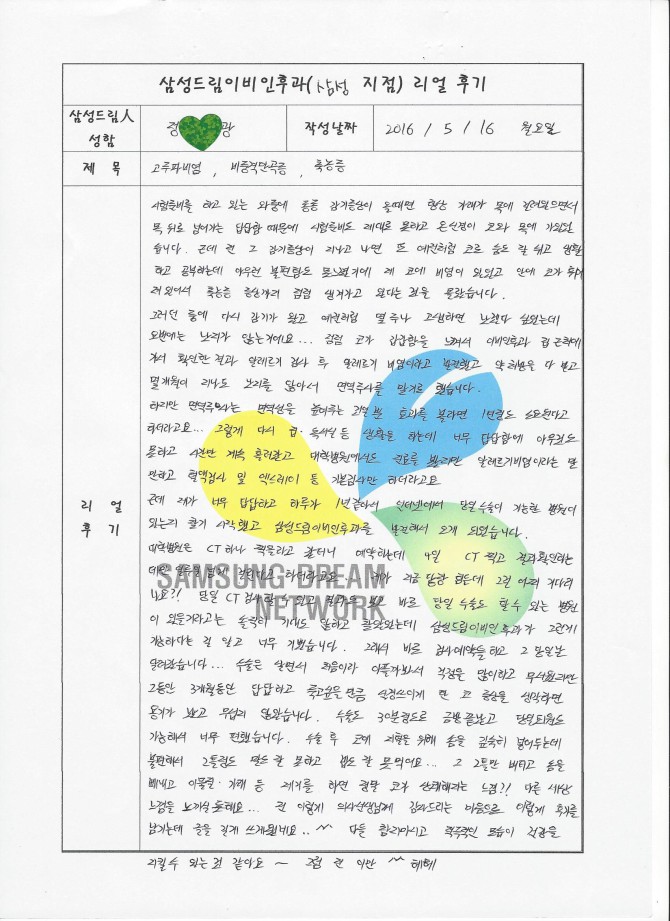 삼성드림이비인후과(삼성 지점) 리얼 후기
삼성드림人
성함
정 광
작성날짜
2016 / 5 / 16 월요일
제 목
고루파비염, 비중격만곡증, 축농증
리 얼
후 기
시험준비를 하고 있는 와중에 종종 감기증상이 올때면 항상 가래가 목에 걸려있으면서
목 뒤로 넘어가는 답답함 때문에 시험준비도 제대로 못하고 온신경이 코와 목에 가있었
습니다. 근데 전 그 감기증상이 지나고 나면 또 예전처럼 코로 숨도 잘 쉬고 생활
하고 공부하는데 아무런 불편함도 못느꼈기에 제 코에 비염이 있었고 안에 코가 휘어
져 있어서 축농증 증상까지 점점 생겨가고 있다는 것을 몰랐습니다.
그러던 중에 다시 감기가 왔고 예전처럼 몇 주나 고생하면 나겠다 싶었는데
오번에는 낫지가 않는거에요... 점점 코가 갑갑함을 느껴서 이비인후과 집 근처에
가서 확인한 결과 알레르기 검사 후 알레르기 비염이라고 발견했고 약 처방을 다 받고
몇개월이 지나도 낫지를 않아서 면역주사를 맞기로 했습니다.
하지만 면역주사는 면역성을 높여주는 것일 뿐 효과를 볼라면 1년정도 소요된다고
하더라고요... 그렇게 다시 집·독서실 등 생활을 하는데 너무 답답함에 아무것도
못하고 시간만 계속 흘러갔고 대학병원에서도 진료를 봤지만 알레르기비염이라는 말
만하고 혈액검사 및 엑스레이 등 기본검사만 하더라고요
근데 제가 너무 답답하고 하루가 1년같아서 인터넷에서 당일수술이 가능한 병원이
있는지 찾기 시작했고 삼성드림이비인후과를 발견해서 오게 되었습니다.
대학병원은 CT 하나 찍을라고 할려니 예약하는데 4일 CT 찍고 결과확인하는
데만 일주일 넘게 걸린다고 하더라고요.. 제가 지금 당장 힘든데 그걸 어찌 기다리
나요?! 당일 CT 검사할 수 있고 결과를 보고 바로 당일 수술도 할 수 있는 병원
이 있을거라고는 솔직히 기대도 안하고 찾았었는데 삼성드림이비인후과가 그런게
가능하다는 걸 알고 너무 기뻤습니다. 그래서 바로 검사예약을하고 그 당일날
달려갔습니다... 수술은 살면서 처음이라 아플까봐서 걱정을 많이하고 무서웠지만
그동안 3개월동안 답답하고 죽고싶을만큼 신경쓰이게 한 코 증상을 생각하면
용기가 났고 무섭지 않았습니다. 수술도 30분정도로 금방 끝났고 당일퇴원도
가능해서 너무 편했습니다. 수술 후 코에 지혈을 위해 솜을 깊숙히 넣어두는데
불편해서 2틀정도 잠도 잘 못하고 밥도 잘 못먹어요... 그 2틀만 버티고 솜을
빼내고 이물질·가래 등 제거를 하면 정말 코가 상쾌해지는 느낌?! 다른 세상
느낌을 느끼실 듯해요... 전 이렇게 의사선생님께 감사드리는 마음으로 이렇게 후기를
남기는데 글을 길게 쓰게됬네요..^^ 다들 합리아시고 적극적인 모습이 건강을
지킬수 있는것 같아요 ~ 점 전 이만 ^^ 헤헤
SAMSUNG DREAM
NETWORK